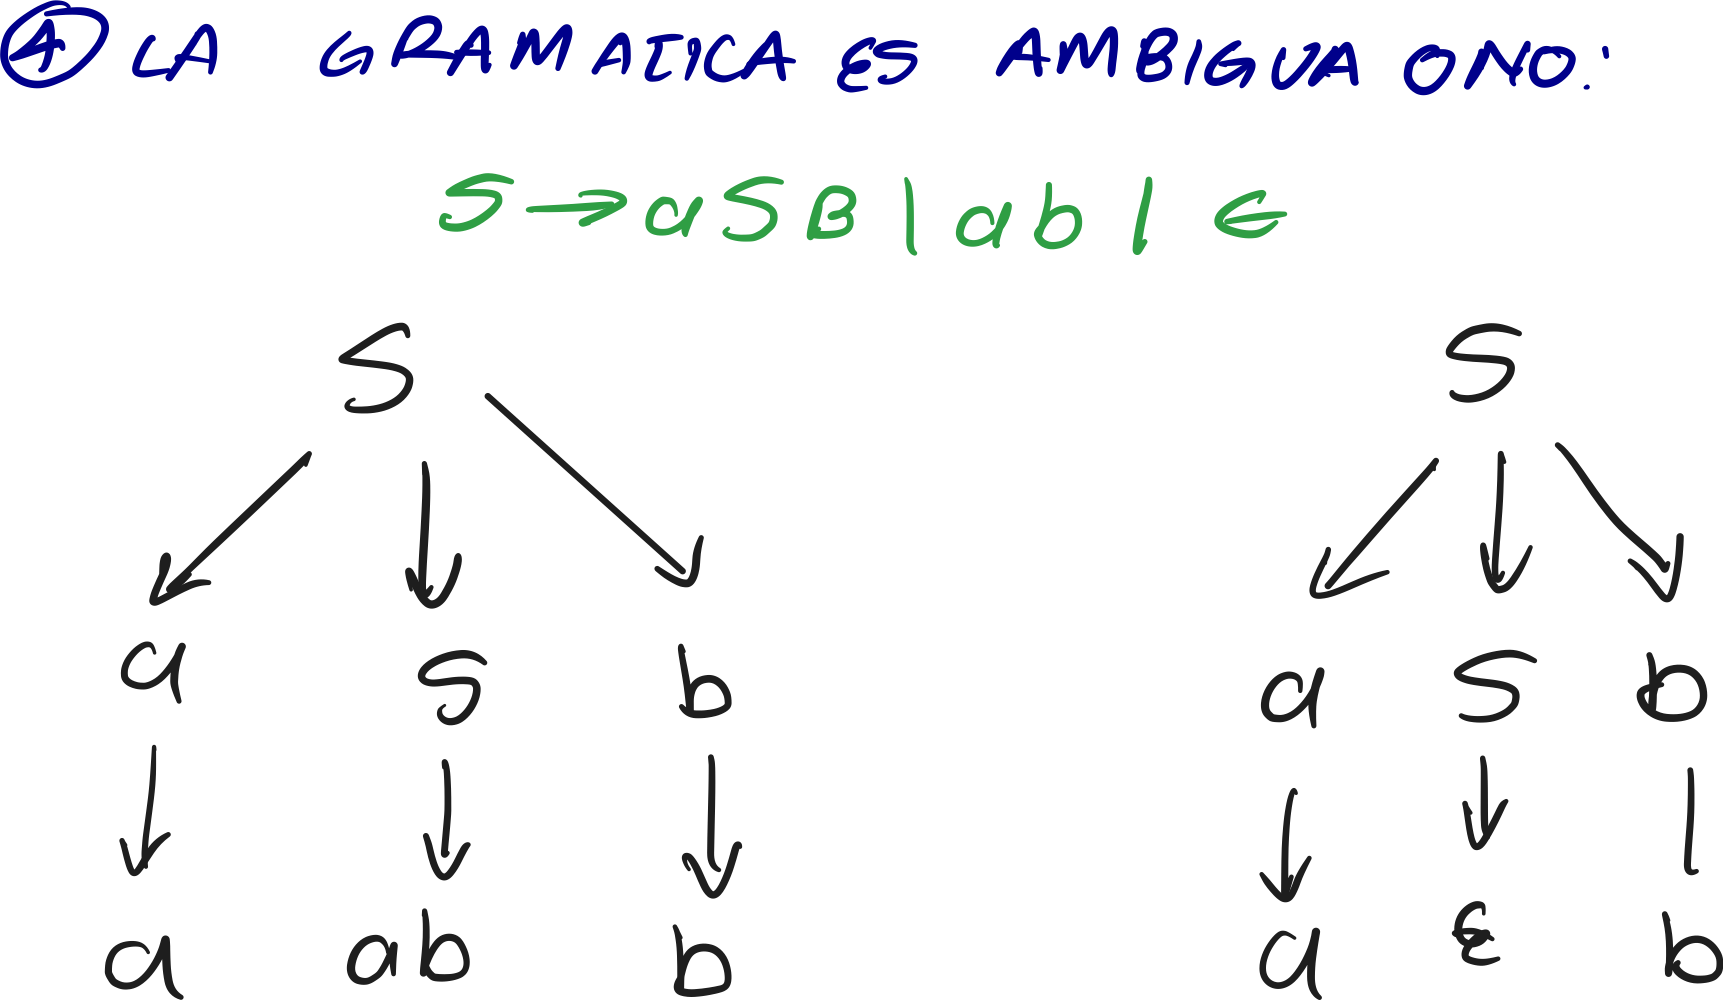 4 LA GRAMATICA ES AMBIGUA O NO:
S → a S B | a b | ∈
S S
a S b a S b
a ab b a ε b